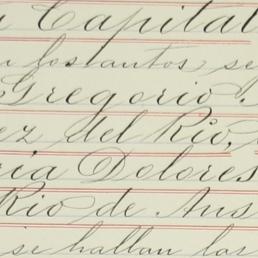 Capital
los autos se
Gregorio
ez del Rio,
ría Dolores
Rio de Aus
se hallan los